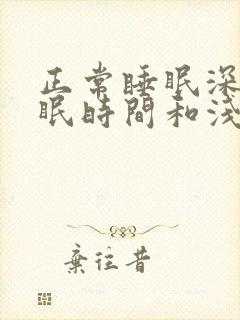 正常睡眠深
眠時間和淺
棄往昔